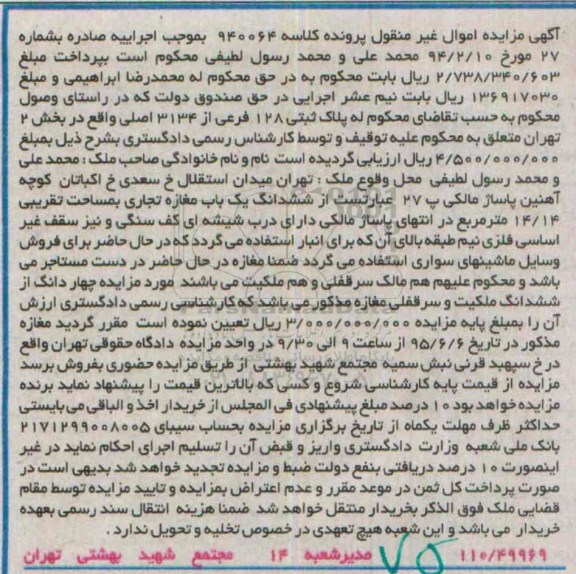 آگهی مزایده اموال غیر منقول پرونده کلاسه ۹۴۰۰۶۴ بموجب اجراییه صادره بشماره
۲۷ مورخ ۹۴/۲/۱۰ محمد علی و محمد رسول لطیفی محکوم است بپرداخت مبلغ
۲/۷۳۸/۳۴۰/۶۰۳ ریال بابت محکوم به در حق محکوم له محمدرضا ابراهیمی و مبلغ
۱۳۶۹۱۷۰۳۰ ریال بابت نیم عشر اجرایی در حق صندوق دولت که در راستای وصول
محکوم به حسب تقاضای محکوم له پلاک ثبتی ۱۲۸ فرعی از ۳۱۳۴ اصلی واقع در بخش ۲
تهران متعلق به محکوم علیه توقیف و توسط کارشناس رسمی دادگستری بشرح ذیل بمبلغ
۴/۵۰۰/۰۰۰/۰۰۰ ریال ارزیابی گردیده است نام و نام خانوادگی صاحب ملک : محمد علی
و محمد رسول لطیفی محل وقوع ملک : تهران میدان استقلال خ سعدی خ اکباتان کوچه
آهنین پاساژ مالکی پ ۲۷ عبارتست از ششدانگ یک باب مغازه تجاری بمساحت تقریبی
۱۴/۱۴ مترمربع در انتهای پاساژ مالکی دارای درب شیشه ای کف سنگی و نیز سقف غیر
اساسی فلزی نیم طبقه بالای آن که برای انبار استفاده می گردد که در حال حاضر برای فروش
وسایل ماشینهای سواری استفاده می گردد ضمنا مغازه در حال حاضر در دست مستاجر می
باشد و محکوم علیهم هم مالک سرقفلی و هم ملکیت می باشند مورد مزایده چهار دانگ از
ششدانگ ملکیت و سرقفلی مغازه مذکور می باشد که کارشناسی رسمی دادگستری ارزش
آن را بمبلغ پایه مزایده ۳/۰۰۰/۰۰۰/۰۰۰ ریال تعیین نموده است مقرر گردید مغازه
مذکور در تاریخ ۹۵/۶/۶ از ساعت ۹ الی ۹/۳۰ در واحد مزایده دادگاه حقوقی تهران واقع
در خ سپهبد قرنی نبش سمیه مجتمع شهید بهشتی از طریق مزایده حضوری بفروش برسد
مزایده از قیمت پایه کارشناسی شروع و کسی که بالاترین قیمت را پیشنهاد نماید برنده
مزایده خواهد بود ۱۰ درصد مبلغ پیشنهادی فی المجلس از خریدار اخذ و الباقی می بایستی
حداکثر ظرف مهلت یکماه از تاریخ برگزاری مزایده بحساب سیبای ۲۱۷۱۲۹۹۰۰۸۰۰۵
بانک ملی شعبه وزارت دادگستری واریز و قبض آن را تسلیم اجرای احکام نماید در غیر
اینصورت ۱۰ درصد دریافتی بنفع دولت ضبط و مزایده تجدید خواهد شد بدیهی است در
صورت پرداخت کل ثمن در موعد مقرر و عدم اعتراض بمزایده و تایید مزایده توسط مقام
قضایی ملک فوق الذکر بخریدار منتقل خواهد شد ضمنا هزینه انتقال سند رسمی بعهده
خریدار می باشد و این شعبه هیچ تعهدی در خصوص تخلیه و تحویل ندارد .
۱۱۰/۴۹۹۶۹ ۷۵ مدیرشعبه ۱۴ مجتمع شهید بهشتی تهران